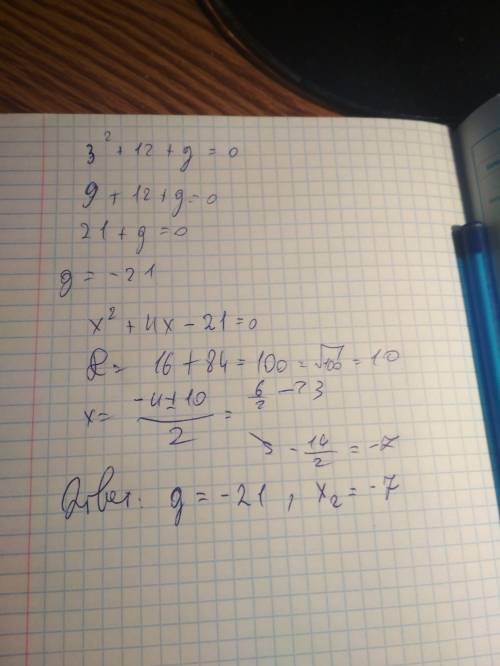 3² + 12 + g = 0
9 + 12 + g = 0
21 + g = 0
g = -21
x² + 4x - 21 = 0
D = 16 + 84 = 100 = √100 = 10
x = (-4 ± 10)/2 = 6/2 → 3
↘ -14/2 = -7
Ответ: g = -21 , x₂ = -7